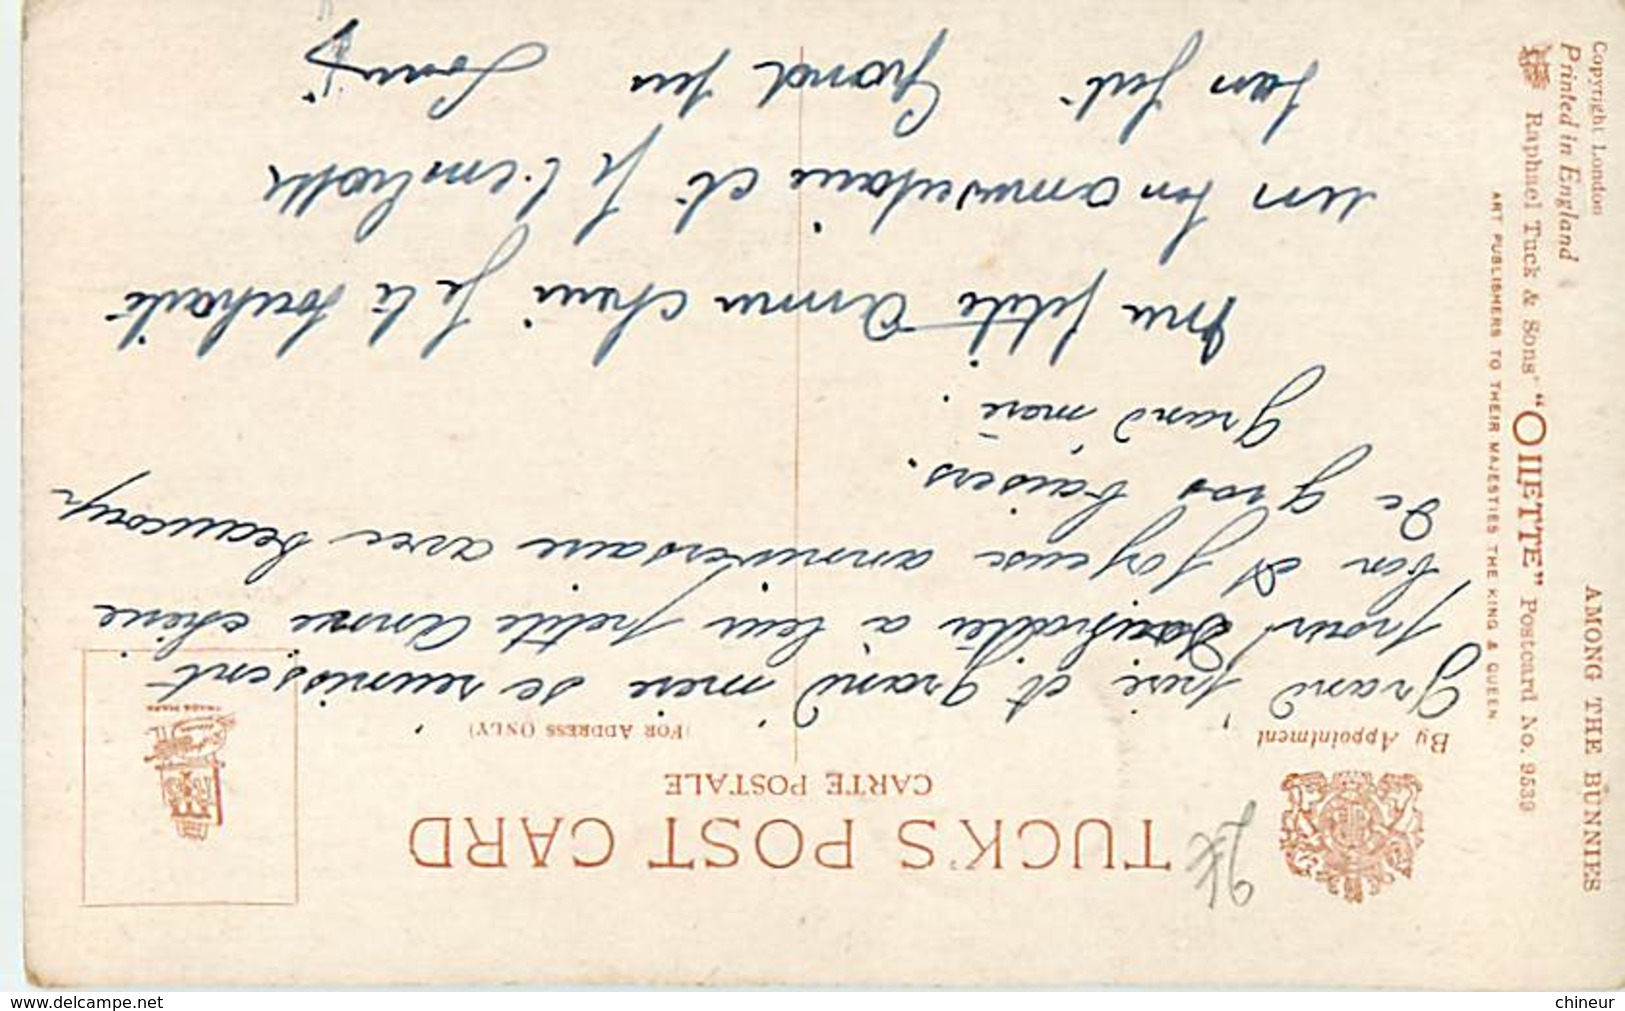 TUCK'S POST CARD
CARTE POSTALE
By Appointment
(FOR ADDRESS ONLY)
TRADE MARK
Grand'père et grand'mère se reunissent
pour souhaiter à leur petite Anne chérie
bon et joyeuse anniversaire avec beaucoup
de gros baisers.
Grand'mère.
Ma petite Anna cherie je te souhaite
un bon anniversaire et je t'embrasse
bien fort Grand père Louis
AMONG THE BUNNIES
Copyright London
Printed in England
Raphael Tuck & Sons' "OILETTE" Postcard No. 9539
ART PUBLISHERS TO THEIR MAJESTIES THE KING & QUEEN.
www.delcampe.net
chineur